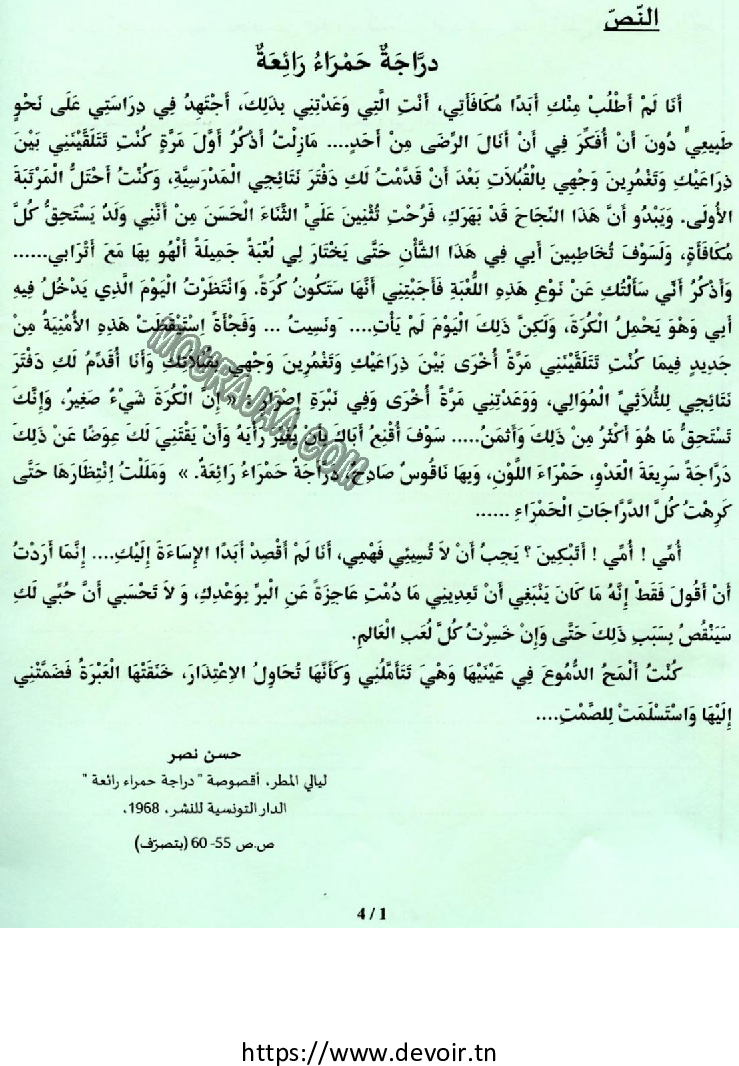 النّصّ
درَّاجَةٌ حَمْرَاءُ رَائِعَةٌ
أَنَا لَمْ أَطْلُبْ مِنْكِ أَبَدًا مُكَافَأَتِي، أَنْتِ الَّتِي وَعَدْتِنِي بِذَلِكَ، أَجْتَهِدُ فِي دِرَاسَتِي عَلَى نَحْوٍ
طَبِيعِيٍّ دُونَ أَنْ أُفَكِّرَ فِي أَنْ أَنَالَ الرِّضَى مِنْ أَحَدٍ.... مَازِلْتُ أَذْكُرُ أَوَّلَ مَرَّةٍ كُنْتِ تَتَلَقَّيْنَنِي بَيْنَ
ذِرَاعَيْكِ وَتَغْمُرِينَ وَجْهِي بِالْقُبُلَاتِ بَعْدَ أَنْ قَدَّمْتُ لَكِ دَفْتَرَ نَتَائِجِي الْمَدْرَسِيَّةِ، وَكُنْتُ أَحْتَلُّ الْمَرْتَبَةَ
الأُولَى. وَيَبْدُو أَنَّ هَذَا النَّجَاحَ قَدْ بَهَرَكِ، فَرُحْتِ تُثْنِينَ عَلَيَّ الثَّنَاءَ الْحَسَنَ مِنْ أَنَّنِي وَلَدٌ يَسْتَحِقُّ كُلَّ
مُكَافَأَةٍ، وَلَسَوْفَ تُخَاطِبِينَ أَبِي فِي هَذَا الشَّأْنِ حَتَّى يَخْتَارَ لِي لُعْبَةً جَمِيلَةً أَلْهُو بِهَا مَعَ أَتْرَابِي......
وَأَذْكُرُ أَنِّي سَأَلْتُكِ عَنْ نَوْعِ هَذِهِ اللُّعْبَةِ فَأَجَبْتِنِي أَنَّهَا سَتَكُونُ كُرَةً. وَانْتَظَرْتُ الْيَوْمَ الَّذِي يَدْخُلُ فِيهِ
أَبِي وَهْوَ يَحْمِلُ الْكُرَةَ، وَلَكِنَّ ذَلِكَ الْيَوْمَ لَمْ يَأْتِ.... وَنَسِيتُ ... وَفَجْأَةً اِسْتَيْقَظَتْ هَذِهِ الأُمْنِيَةُ مِنْ
جَدِيدٍ فِيمَا كُنْتِ تَتَلَقَّيْنَنِي مَرَّةً أُخْرَى بَيْنَ ذِرَاعَيْكِ وَتَغْمُرِينَ وَجْهِي بِقُبُلَاتِكِ وَأَنَا أُقَدِّمُ لَكِ دَفْتَرَ
نَتَائِجِي لِلثُّلَاثِيِّ الْمُوَالِي، وَوَعَدْتِنِي مَرَّةً أُخْرَى وَفِي نَبْرَةِ إِصْرَارٍ : « إِنَّ الْكُرَةَ شَيْءٌ صَغِيرٌ، وَإِنَّكَ
تَسْتَحِقُّ مَا هُوَ أَكْثَرُ مِنْ ذَلِكَ وَأَثْمَنُ..... سَوْفَ أُقْنِعُ أَبَاكَ بِأَنْ يُغَيِّرَ رَأْيَهُ وَأَنْ يَقْتَنِيَ لَكَ عِوَضًا عَنْ ذَلِكَ
دَرَّاجَةً سَرِيعَةَ الْعَدْوِ، حَمْرَاءَ اللَّوْنِ، وَبِهَا نَاقُوسٌ صَادِحٌ، دَرَّاجَةٌ حَمْرَاءُ رَائِعَةٌ. » وَمَلَلْتُ اِنْتِظَارَهَا حَتَّى
كَرِهْتُ كُلَّ الدَّرَّاجَاتِ الْحَمْرَاءِ ......
أُمِّي ! أُمِّي ! أَتَبْكِينَ ؟ يَجِبُ أَنْ لاَ تُسِيئِي فَهْمِي، أَنَا لَمْ أَقْصِدْ أَبَدًا الإِسَاءَةَ إِلَيْكِ.... إِنَّمَا أَرَدْتُ
أَنْ أَقُولَ فَقَطْ إِنَّهُ مَا كَانَ يَنْبَغِي أَنْ تَعِدِينِي مَا دُمْتِ عَاجِزَةً عَنِ الْبِرِّ بِوَعْدِكِ، وَ لاَ تَحْسَبِي أَنَّ حُبِّي لَكِ
سَيَنْقُصُ بِسَبَبِ ذَلِكَ حَتَّى وَإِنْ خَسِرْتُ كُلَّ لُعَبِ الْعَالَمِ.
كُنْتُ أَلْمَحُ الدُّمُوعَ فِي عَيْنَيْهَا وَهْيَ تَتَأَمَّلُنِي وَكَأَنَّهَا تُحَاوِلُ الاِعْتِذَارَ، خَنَقَتْهَا الْعَبْرَةُ فَضَمَّتْنِي
إِلَيْهَا وَاسْتَسْلَمَتْ لِلصَّمْتِ....
حسن نصر
ليالي المطر، أقصوصة " دراجة حمراء رائعة "
الدار التونسية للنشر، 1968،
ص.ص 55- 60 (بتصرّف)
4 / 1
MOURAJAA.COM
https://www.devoir.tn